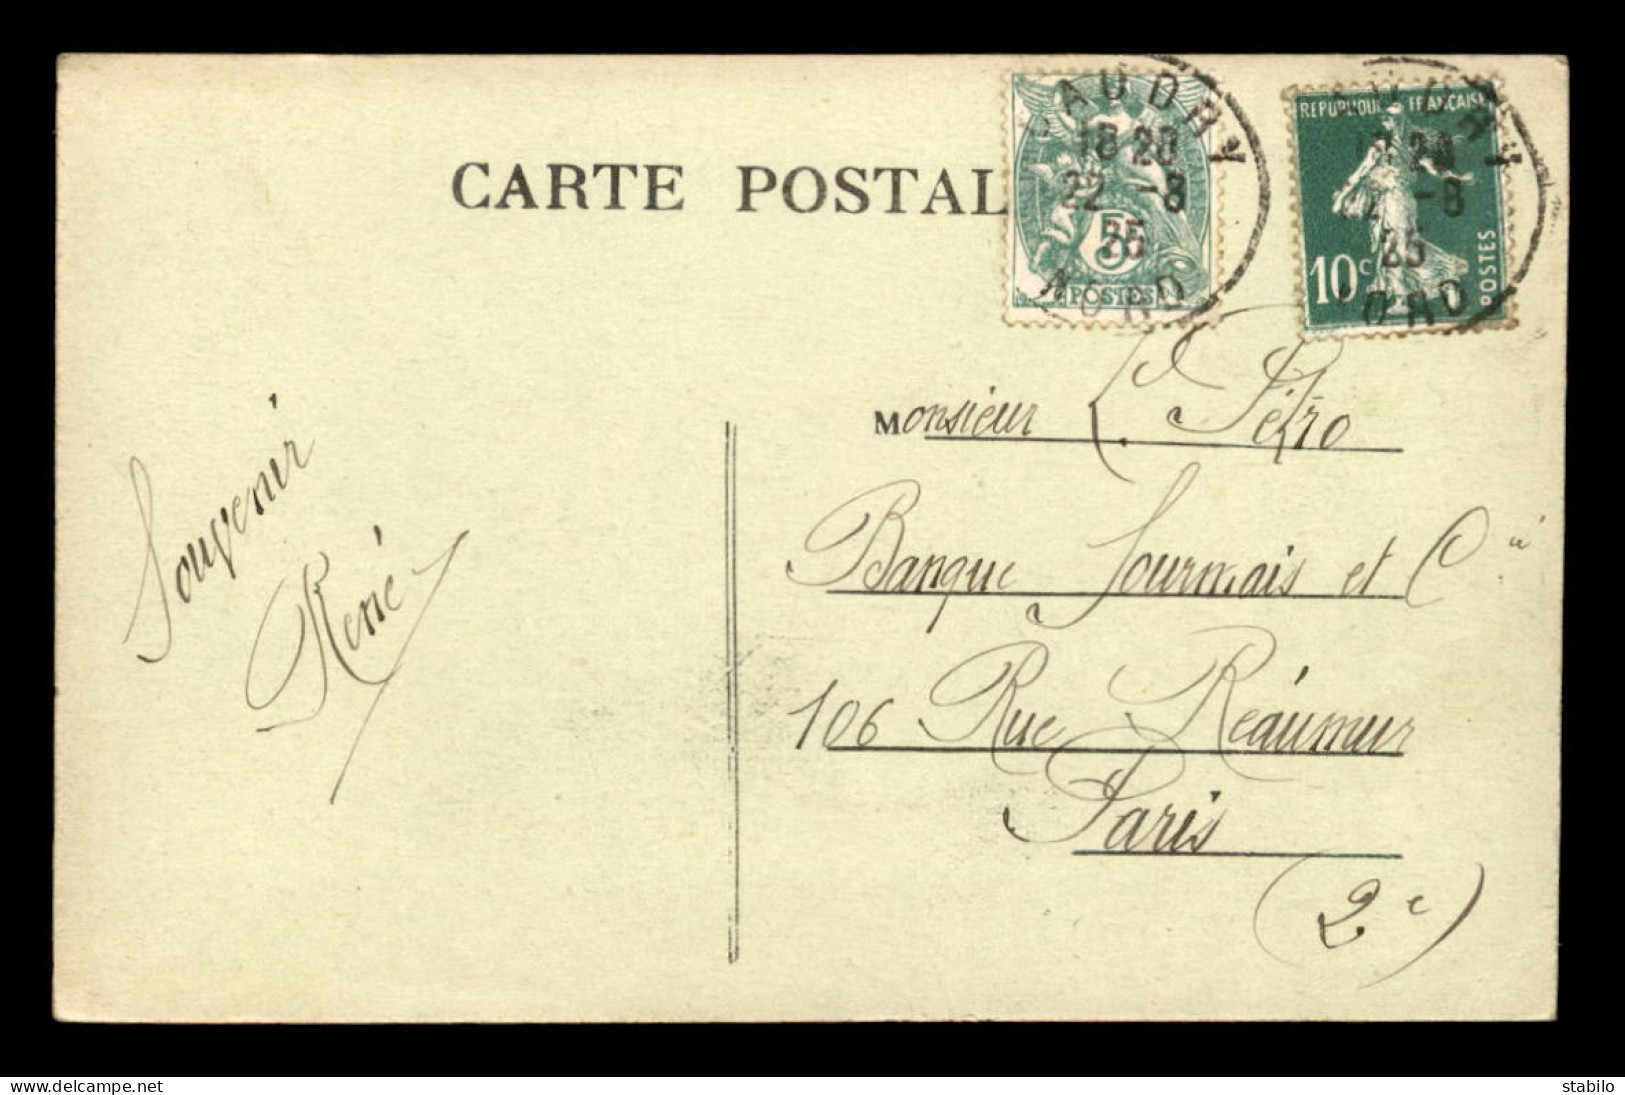 CARTE POSTAL
AUDRY
18 20
22 -8
25
NORD
5
POSTES
REPUBLIQUE FRANÇAISE
10c
POSTES
-8
25
ORD
Monsieur L. Pétro
Banque Journais et Cie
106 Rue Réaumur
Paris
(2e)
Souvenir
René
delcampe.net
stabilo